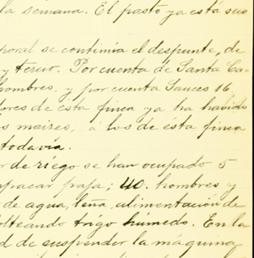 la semana. El pasto ya está seis
poral se continúa el despunte, de
y tercio. Por cuenta de Santa Ca-
hombres, y por cuenta Sauces 16,
dores de esta finca ya ha habido
s maizes, a los de ésta finca
todavía.
r de riego se han ocupado 5
apacar paja; 40. hombres y
de agua, leña, alimentación de
olteando trigo húmedo. En la
d de suspender la máquina